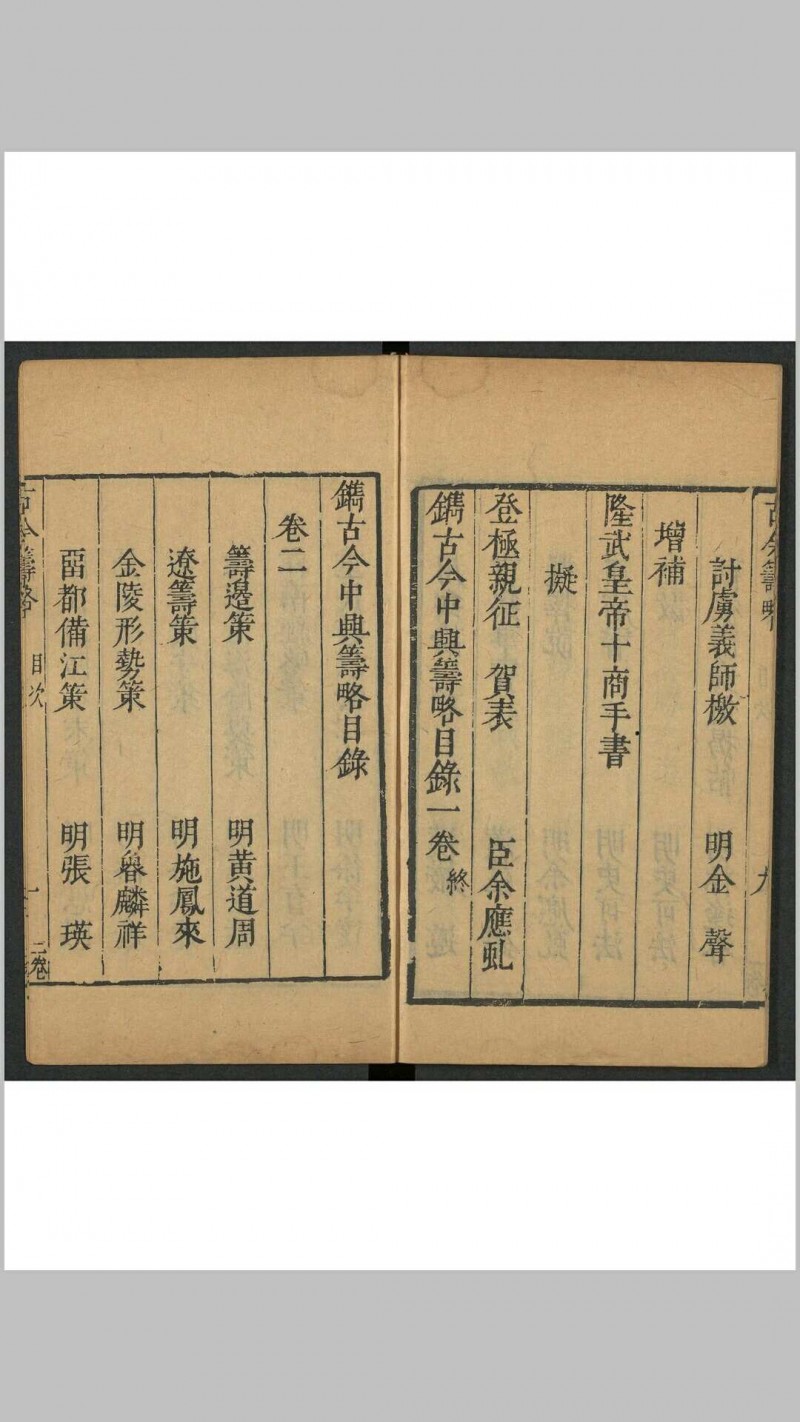 討虜義師檄　明金　聲
增補
隆武皇帝十商手書
擬
登極親征　賀表　臣余應虬
鐫古今中興籌略目錄一卷　終
鐫古今中興籌略目錄
卷二
籌邊策　明黃道周
遼籌策　明施鳳來
金陵形勢策　明
麟祥
畱都備江策　明張　瑛
古今籌略　目次　一　二卷